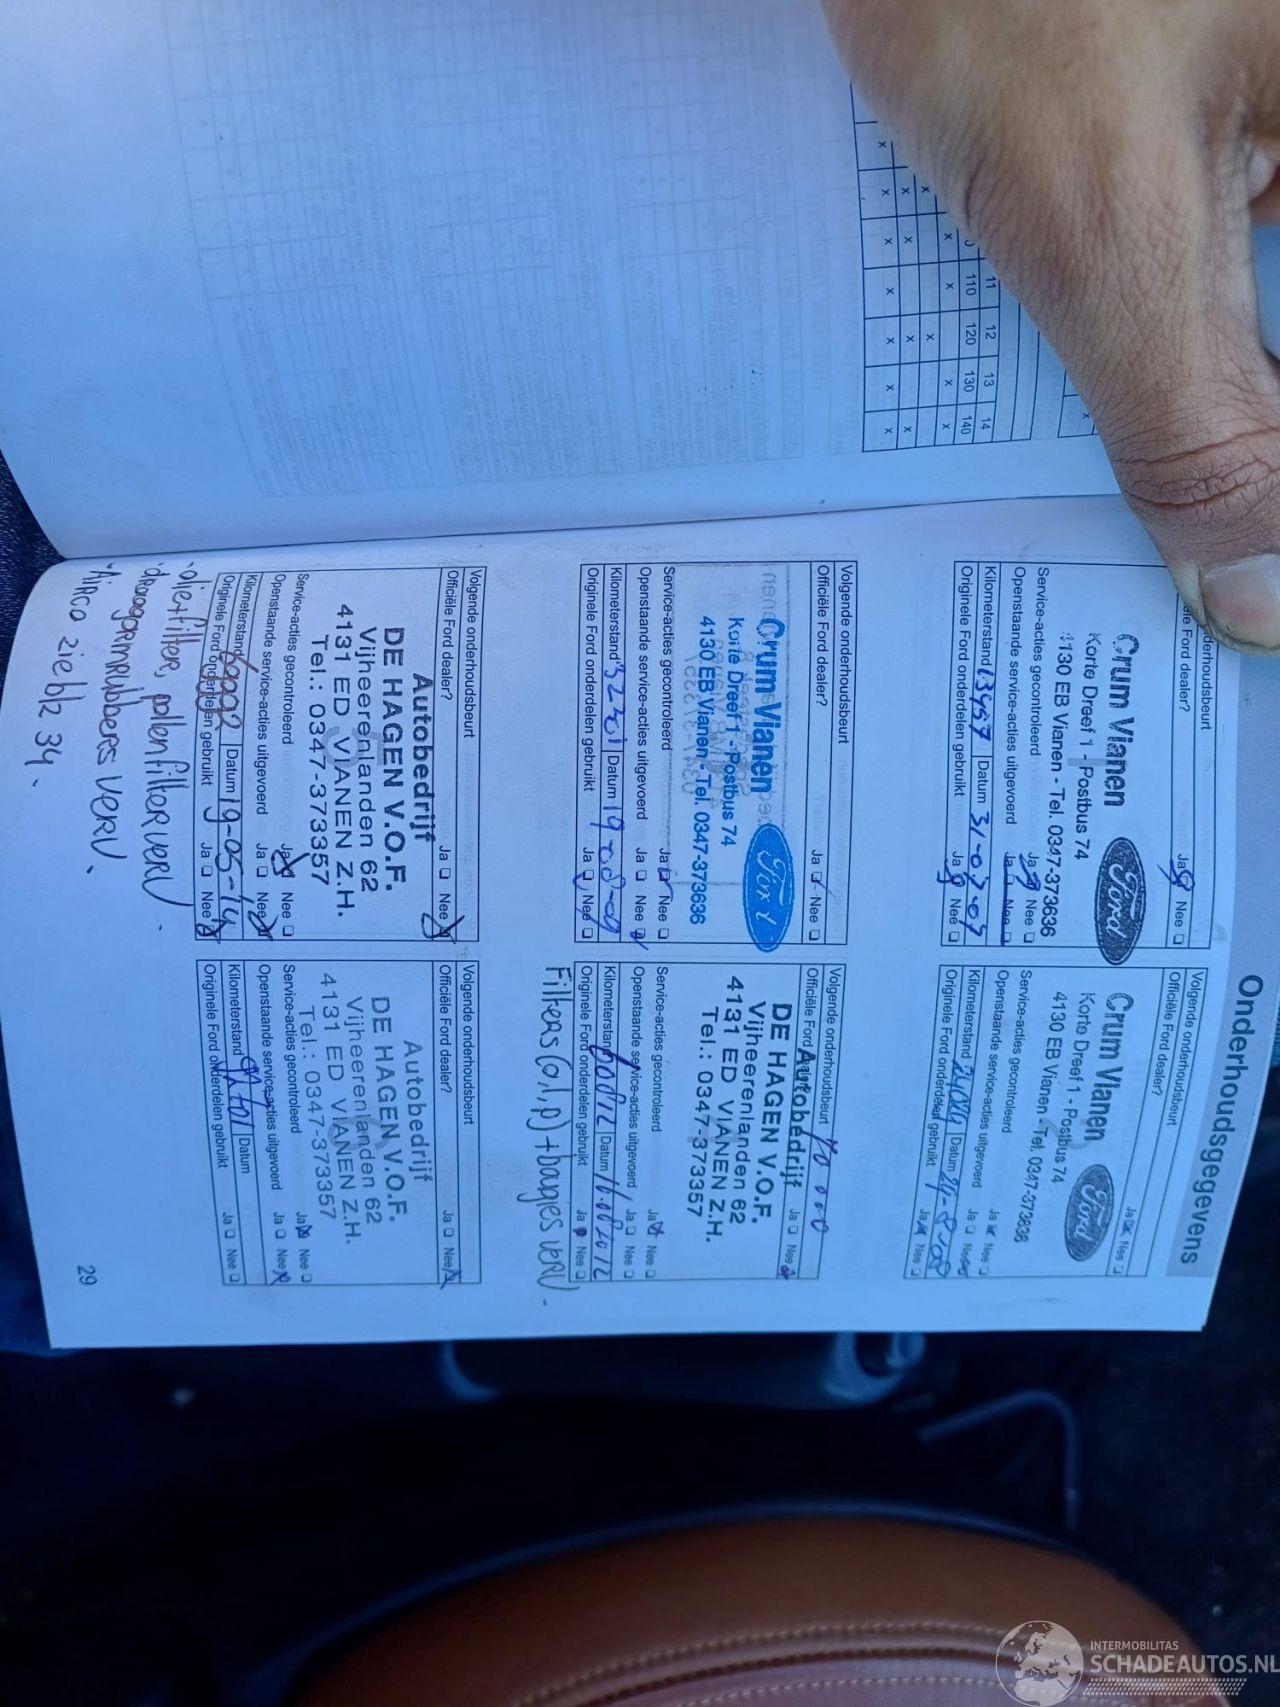 Onderhoudsgegevens
derhoudsbeurt
ele Ford dealer? Ja Nee
Crum Vianen
Korte Dreef 1 - Postbus 74
4130 EB Vianen - Tel. 0347-373636
Ford
Service-acties gecontroleerd Ja Nee
Openstaande service-acties uitgevoerd Ja Nee
Kilometerstand 13457 Datum 31-07-07
Originele Ford onderdelen gebruikt Ja Nee
Volgende onderhoudsbeurt
Officiële Ford dealer? Ja Nee
Crum Vianen
Korte Dreef 1 - Postbus 74
4130 EB Vianen - Tel. 0347-373636
Ford
Service-acties gecontroleerd Ja Nee
Openstaande service-acties uitgevoerd Ja Nee
Kilometerstand Datum
Originele Ford onderdelen gebruikt Ja Nee
Volgende onderhoudsbeurt
Officiële Ford dealer? Ja Nee
Crum Vianen
Korte Dreef 1 - Postbus 74
4130 EB Vianen - Tel. 0347-373636
Ford
Service-acties gecontroleerd Ja Nee
Openstaande service-acties uitgevoerd Ja Nee
Kilometerstand Datum 19-08-09
Originele Ford onderdelen gebruikt Ja Nee
Volgende onderhoudsbeurt 70 000
Officiële Ford Ja Nee
Autobedrijf
DE HAGEN V.O.F.
Vijheerenlanden 62
4131 ED VIANEN Z.H.
Tel.: 0347-373357
Service-acties gecontroleerd Ja Nee
Openstaande service-acties uitgevoerd Ja Nee
Kilometerstand Datum
Originele Ford onderdelen gebruikt Ja Nee
Filters (o,l,p) + bougies verv.
Volgende onderhoudsbeurt
Officiële Ford dealer? Ja Nee
Autobedrijf
DE HAGEN V.O.F.
Vijheerenlanden 62
4131 ED VIANEN Z.H.
Tel.: 0347-373357
Service-acties gecontroleerd Ja Nee
Openstaande service-acties uitgevoerd Ja Nee
Kilometerstand Datum 19-05-14
Originele Ford onderdelen gebruikt Ja Nee
olie+filter, pollenfilter verv.
draagarmrubbers verv.
Airco zie blz 34.
Volgende onderhoudsbeurt
Officiële Ford dealer? Ja Nee
Autobedrijf
DE HAGEN V.O.F.
Vijheerenlanden 62
4131 ED VIANEN Z.H.
Tel.: 0347-373357
Service-acties gecontroleerd Ja Nee
Openstaande service-acties uitgevoerd Ja Nee
Kilometerstand Datum
Originele Ford onderdelen gebruikt Ja Nee
29
11 12 13 14
110 120 130 140
x x x
x
x x x
x x x x x x x
INTERMOBILITAS
SCHADEAUTOS.NL